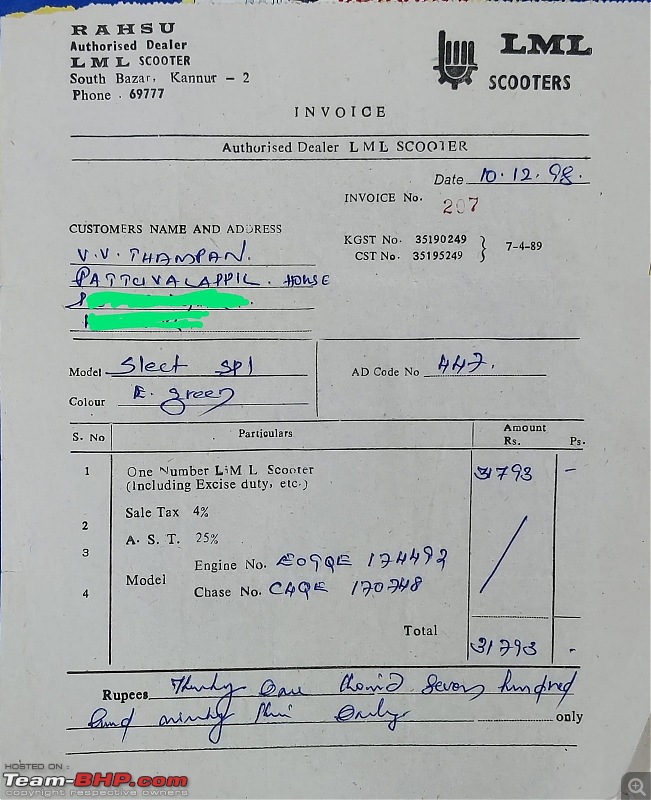 RAHSU
Authorised Dealer
LML SCOOTER
South Bazar, Kannur - 2
Phone . 69777
LML
SCOOTERS
INVOICE
Authorised Dealer LML SCOOTER
Date 10.12.98.
INVOICE No. 207
CUSTOMERS NAME AND ADDRESS
V.V. THAMPAN.
PATTUVALAPPIL. HOUSE
KGST No. 35190249
CST No. 35195249
} 7-4-89
Model Slect spl
AD Code No 447.
Colour E. green
S. No Particulars Amount
Rs. Ps.
1 One Number LML Scooter 31793 -
(Including Excise duty, etc.)
2 Sale Tax 4%
3 A. S. T. 25%
4 Model Engine No. E09QE 174492
Chase No. C4QE 170748
Total 31793 -
Rupees Thirty One Seven hundred
and ninety Only only
HOSTED ON :
Team-BHP.com
copyright respective owners